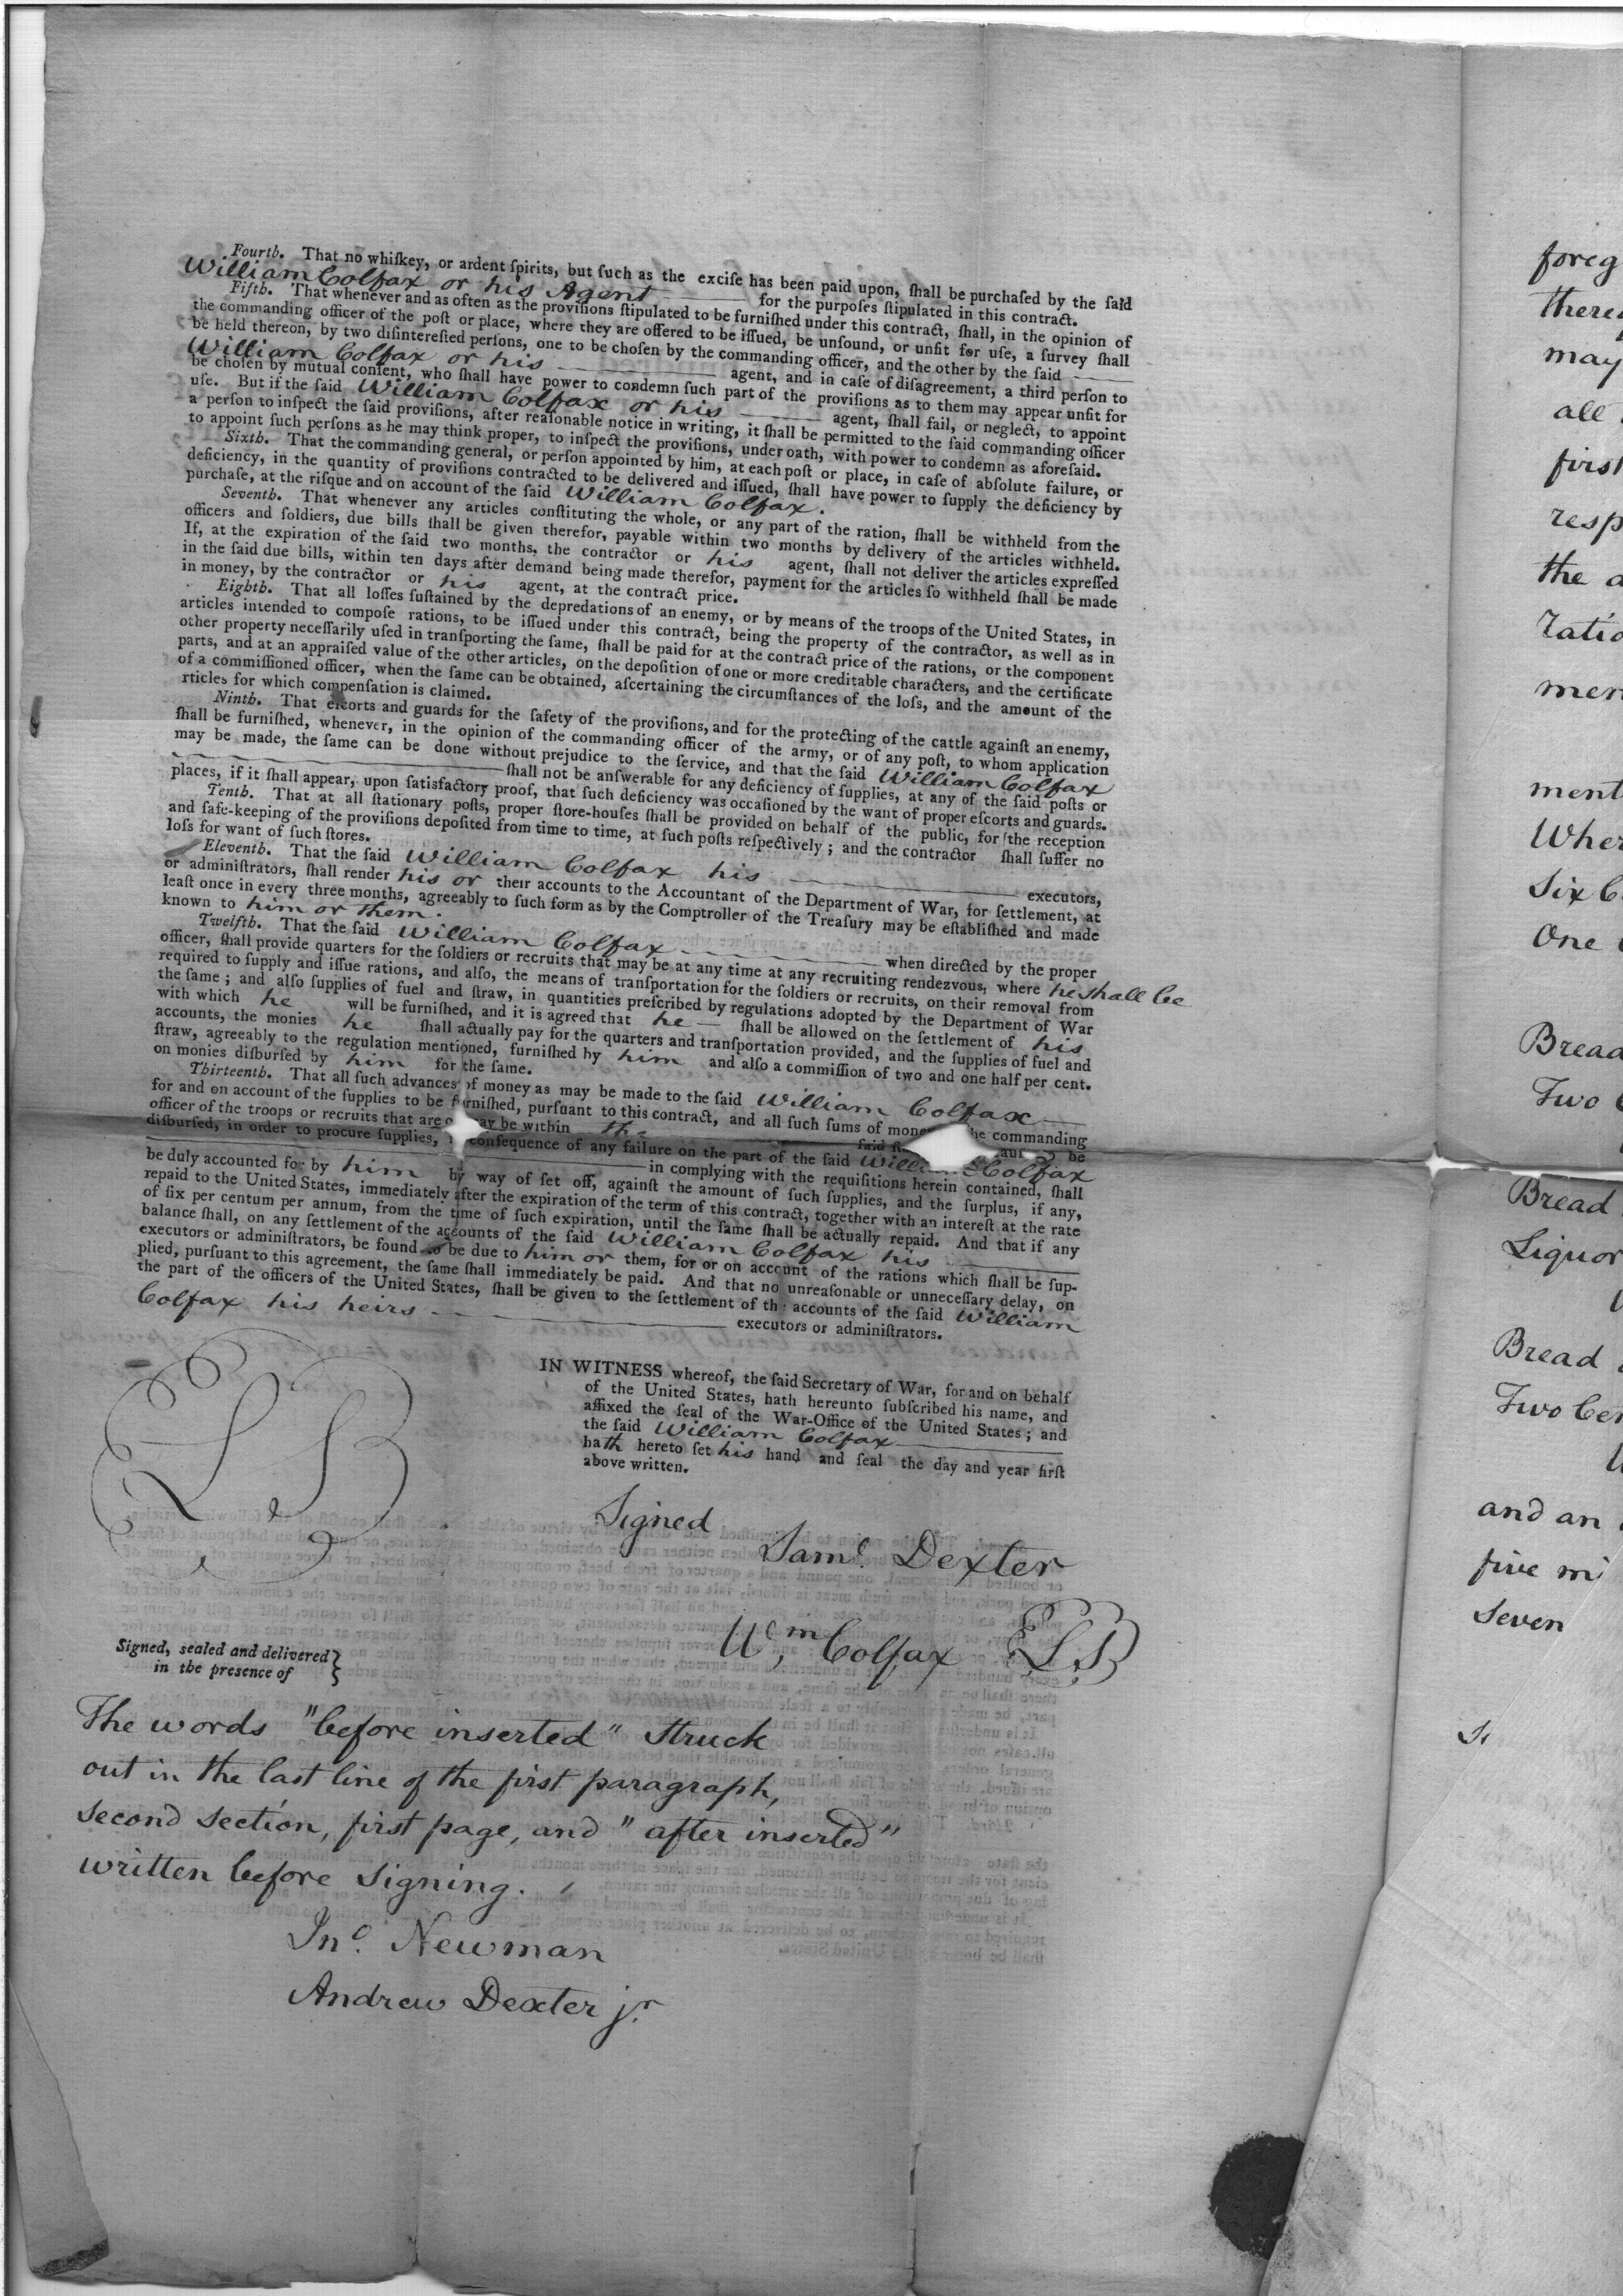 Fourth. That no whiſkey, or ardent ſpirits, but ſuch as the exciſe has been paid upon, ſhall be purchaſed by the ſaid
William Colfax or his Agent for the purpoſes ſtipulated in this contract.
Fifth. That whenever and as often as the proviſions ſtipulated to be furniſhed under this contract, ſhall, in the opinion of
the commanding officer of the poſt or place, where they are offered to be iſſued, be unſound, or unfit for uſe, a ſurvey ſhall
be held thereon, by two diſintereſted perſons, one to be choſen by the commanding officer, and the other by the ſaid
William Colfax or his agent, and in caſe of diſagreement, a third perſon to
be choſen by mutual conſent, who ſhall have power to condemn ſuch part of the proviſions as to them may appear unfit for
uſe. But if the ſaid William Colfax or his agent, ſhall fail, or neglect, to appoint
a perſon to inſpect the ſaid proviſions, after reaſonable notice in writing, it ſhall be permitted to the ſaid commanding officer
to appoint ſuch perſons as he may think proper, to inſpect the proviſions, under oath, with power to condemn as aforeſaid.
Sixth. That the commanding general, or perſon appointed by him, at each poſt or place, in caſe of abſolute failure, or
deficiency, in the quantity of proviſions contracted to be delivered and iſſued, ſhall have power to ſupply the deficiency by
purchaſe, at the riſque and on account of the ſaid William Colfax.
Seventh. That whenever any articles conſtituting the whole, or any part of the ration, ſhall be withheld from the
officers and ſoldiers, due bills ſhall be given therefor, payable within two months by delivery of the articles withheld.
If, at the expiration of the ſaid two months, the contractor or his agent, ſhall not deliver the articles expreſſed
in the ſaid due bills, within ten days after demand being made therefor, payment for the articles ſo withheld ſhall be made
in money, by the contractor or his agent, at the contract price.
Eighth. That all loſſes ſuſtained by the depredations of an enemy, or by means of the troops of the United States, in
articles intended to compoſe rations, to be iſſued under this contract, being the property of the contractor, as well as in
other property neceſſarily uſed in tranſporting the ſame, ſhall be paid for at the contract price of the rations, or the component
parts, and at an appraiſed value of the other articles, on the depoſition of one or more creditable characters, and the certificate
of a commiſſioned officer, when the ſame can be obtained, aſcertaining the circumſtances of the loſs, and the amount of the
rticles for which compenſation is claimed.
Ninth. That eſcorts and guards for the ſafety of the proviſions, and for the protecting of the cattle againſt an enemy,
ſhall be furniſhed, whenever, in the opinion of the commanding officer of the army, or of any poſt, to whom application
may be made, the ſame can be done without prejudice to the ſervice, and that the ſaid William Colfax
ſhall not be anſwerable for any deficiency of ſupplies, at any of the ſaid poſts or
places, if it ſhall appear, upon ſatisfactory proof, that ſuch deficiency was occaſioned by the want of proper eſcorts and guards.
Tenth. That at all ſtationary poſts, proper ſtore-houſes ſhall be provided on behalf of the public, for the reception
and ſafe-keeping of the proviſions depoſited from time to time, at ſuch poſts reſpectively; and the contractor ſhall ſuffer no
loſs for want of ſuch ſtores.
Eleventh. That the ſaid William Colfax his executors,
or adminiſtrators, ſhall render his or their accounts to the Accountant of the Department of War, for ſettlement, at
leaſt once in every three months, agreeably to ſuch form as by the Comptroller of the Treaſury may be eſtabliſhed and made
known to him or them.
Twelfth. That the ſaid William Colfax when directed by the proper
officer, ſhall provide quarters for the ſoldiers or recruits that may be at any time at any recruiting rendezvous, where he shall be
required to ſupply and iſſue rations, and alſo, the means of tranſportation for the ſoldiers or recruits, on their removal from
the ſame; and alſo ſupplies of fuel and ſtraw, in quantities preſcribed by regulations adopted by the Department of War
with which he will be furniſhed, and it is agreed that he ſhall be allowed on the ſettlement of his
accounts, the monies he ſhall actually pay for the quarters and tranſportation provided, and the ſupplies of fuel and
ſtraw, agreeably to the regulation mentioned, furniſhed by him and alſo a commiſſion of two and one half per cent.
on monies diſburſed by him for the ſame.
Thirteenth. That all ſuch advances of money as may be made to the ſaid William Colfax
for and on account of the ſupplies to be furniſhed, purſuant to this contract, and all ſuch ſums of money the commanding
officer of the troops or recruits that are or may be within the ſaid be
diſburſed, in order to procure ſupplies, in conſequence of any failure on the part of the ſaid William Colfax
in complying with the requiſitions herein contained, ſhall
be duly accounted for by him by way of ſet off, againſt the amount of ſuch ſupplies, and the ſurplus, if any,
repaid to the United States, immediately after the expiration of the term of this contract, together with an intereſt at the rate
of ſix per centum per annum, from the time of ſuch expiration, until the ſame ſhall be actually repaid. And that if any
balance ſhall, on any ſettlement of the accounts of the ſaid William Colfax his
executors or adminiſtrators, be found to be due to him or them, for or on account of the rations which ſhall be ſup-
plied, purſuant to this agreement, the ſame ſhall immediately be paid. And that no unreaſonable or unneceſſary delay, on
the part of the officers of the United States, ſhall be given to the ſettlement of the accounts of the ſaid William
Colfax his heirs executors or adminiſtrators.
IN WITNESS whereof, the ſaid Secretary of War, for and on behalf
of the United States, hath hereunto ſubſcribed his name, and
affixed the ſeal of the War-Office of the United States; and
the ſaid William Colfax
hath hereto ſet his hand and ſeal the day and year firſt
above written.
LS
Signed
Saml. Dexter
Wm, Colfax LS
Signed, sealed and delivered
in the presence of
The words "before inserted" struck
out in the last line of the first paragraph,
second section, first page, and "after inserted"
written before signing.
Jno. Newman
Andrew Dexter jr.
foreg
there
may
all
first
resp
the a
ratio
men
ment
Wher
Six C
One
Bread
Two
Bread
Liquor
Bread
Two Cen
and an
five mi
Seven